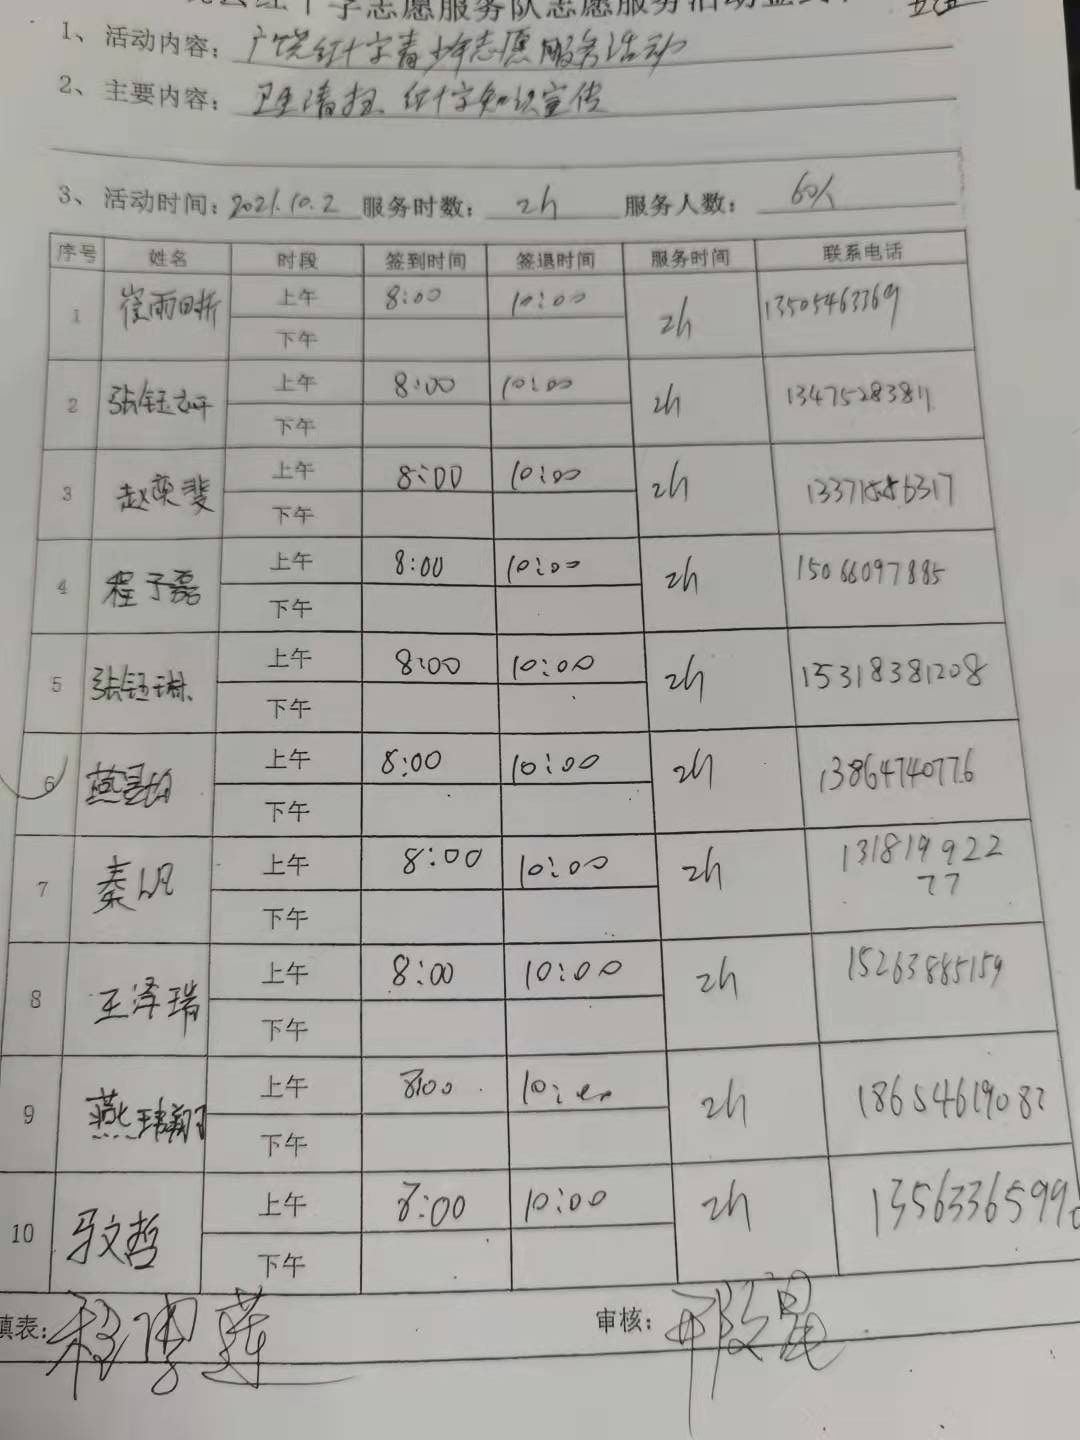 红十字志愿服务队志愿服务活动签到
1、活动内容：广饶红十字青少年志愿服务活动
2、主要内容：卫生清扫、红十字知识宣传
3、活动时间：2021.10.2 服务时数：2h 服务人数：60人
序号 姓名 时段 签到时间 签退时间 服务时间 联系电话
1 崔雨昕 上午 8:00 10:00 2h 13505463369
下午
2 张钰 上午 8:00 10:00 2h 13475283811
下午
3 赵奕斐 上午 8:00 10:00 2h
下午
4 程子磊 上午 8:00 10:00 2h 15066097885
下午
5 张钰琳 上午 8:00 10:00 2h 15318381208
下午
6 上午 8:00 10:00 2h 13864740776
下午
7 秦 上午 8:00 10:00 2h 13181992277
下午
8 王泽瑞 上午 8:00 10:00 2h 15263885159
下午
9 燕玮翔 上午 8:00 2h
下午
10 马文哲 上午 8:00 10:00 2h
下午
填表： 审核：